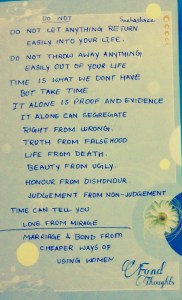 DO NOT
Suchishree
DO NOT LET ANYTHING RETURN
EASILY INTO YOUR LIFE.
DO NOT THROW AWAY ANYTHING
EASILY OUT OF YOUR LIFE
TIME IS WHAT WE DONT HAVE
BUT TAKE TIME
IT ALONE IS PROOF AND EVIDENCE
IT ALONE CAN SEGREGATE
RIGHT FROM WRONG.
TRUTH FROM FALSEHOOD
LIFE FROM DEATH.
BEAUTY FROM UGLY.
HONOUR FROM DISHONOUR
JUDGEMENT FROM NON-JUDGEMENT
TIME CAN TELL YOU
LOVE FROM MIRAGE
MARRIAGE & BOND FROM
CHEAPER WAYS OF
USING WOMEN
Fond
Thoughts